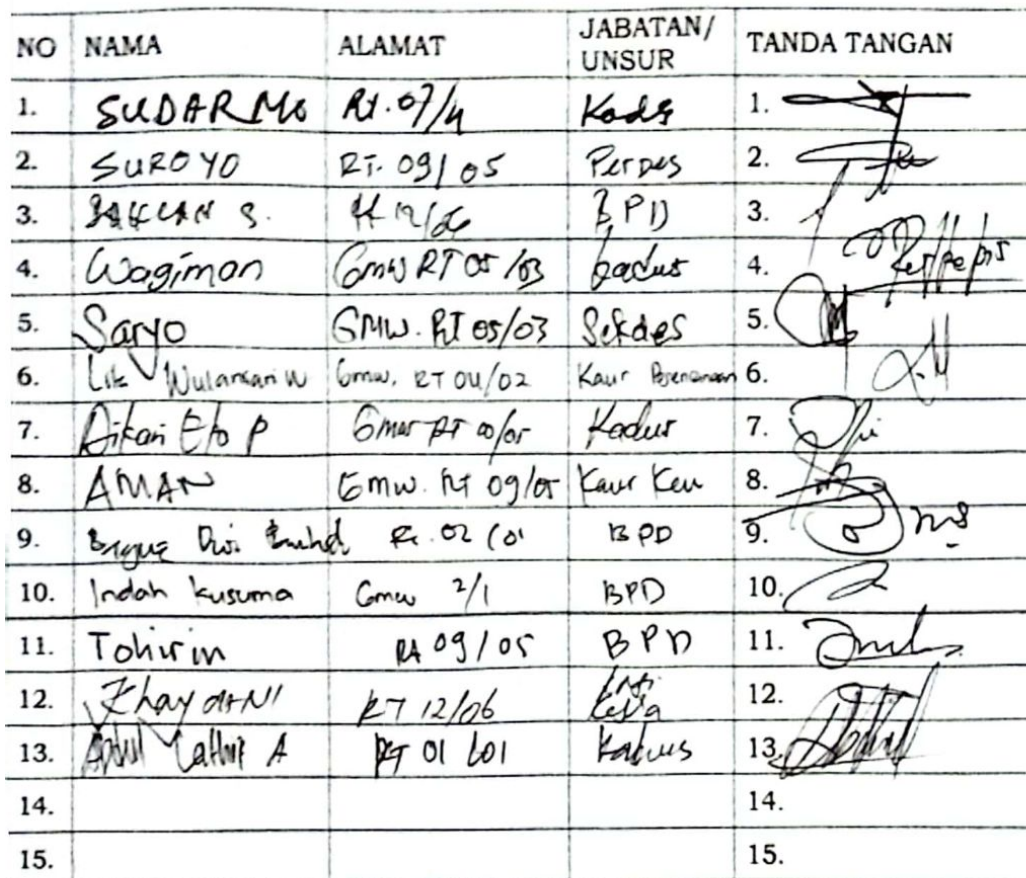 NO NAMA ALAMAT JABATAN/ UNSUR TANDA TANGAN
1. SUDARMO Rt. 07/4 Kades 1.
2. SUROYO RT. 09/05 Perdes 2.
3. S. 12/06 BPD 3.
4. Wagiman Gmw RT 05/03 Kadus 4.
5. Saryo GMW. RT 05/03 Sekdes 5.
6. Lik Wulansari W Gmw. RT 04/02 Kaur 6.
7. Eko P Gmw RT Kadus 7.
8. AMAN Gmw. RT 09/05 Kaur Keu 8.
9. Dwi Rt. 02/01 BPD 9.
10. Indah Kusuma Gmw 2/1 BPD 10.
11. Tohirin Rt 09/05 BPD 11.
12. RT 12/06 12.
13. Abdul A RT 01/01 Kadus 13.
14. 14.
15. 15.